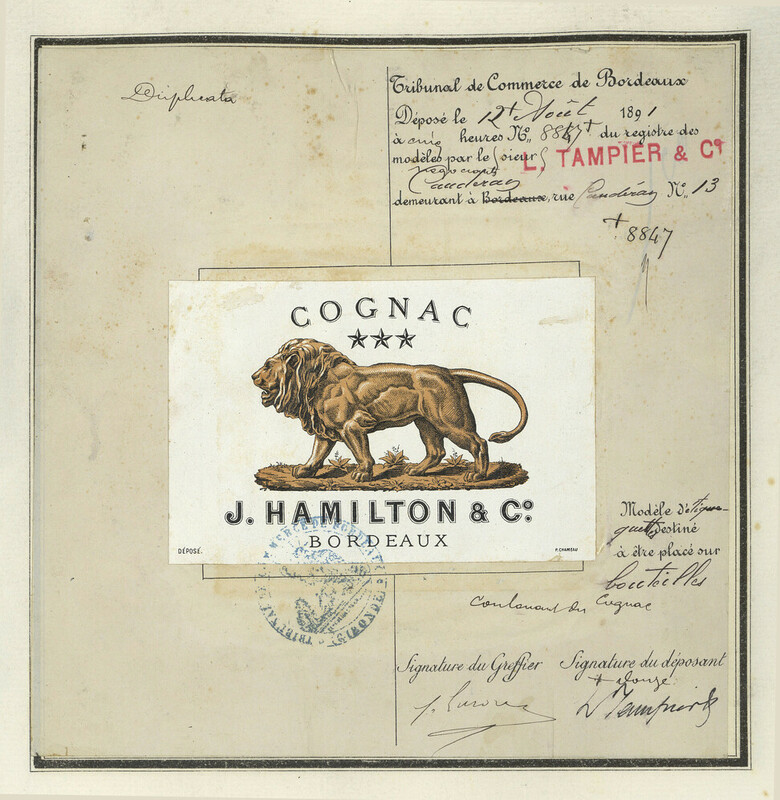 Duplicata
Tribunal de Commerce de Bordeaux
Déposé le 12+ Août 1891
à cinq heures No. 8847+ du registre des
modèles par le sieurs L. TAMPIER & Co
négociants
Caudéran
demeurant à Bordeaux, rue Caudéran No. 13
+ 8847
COGNAC
J. HAMILTON & Co.
BORDEAUX
DÉPOSÉ.
P. CHAMBAU
Modèle d'étique-
quette destiné
à être placé sur
bouteilles
contenant du Cognac
TRIBUNAL DE COMMERCE DE BORDEAUX (GIRONDE)
Signature du Greffier
Signature du déposant
+ douze
L Tampier &